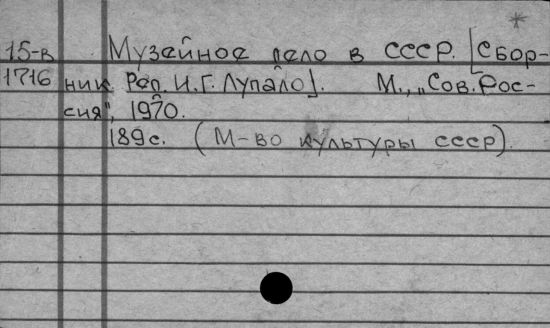 *
15-в Музейное дело в СССР. [Сбор-
1716 ник. Ред. И.Г. Лупало]. М., „Сов. Рос-
сия", 1970.
189 с. (М-во культуры СССР).